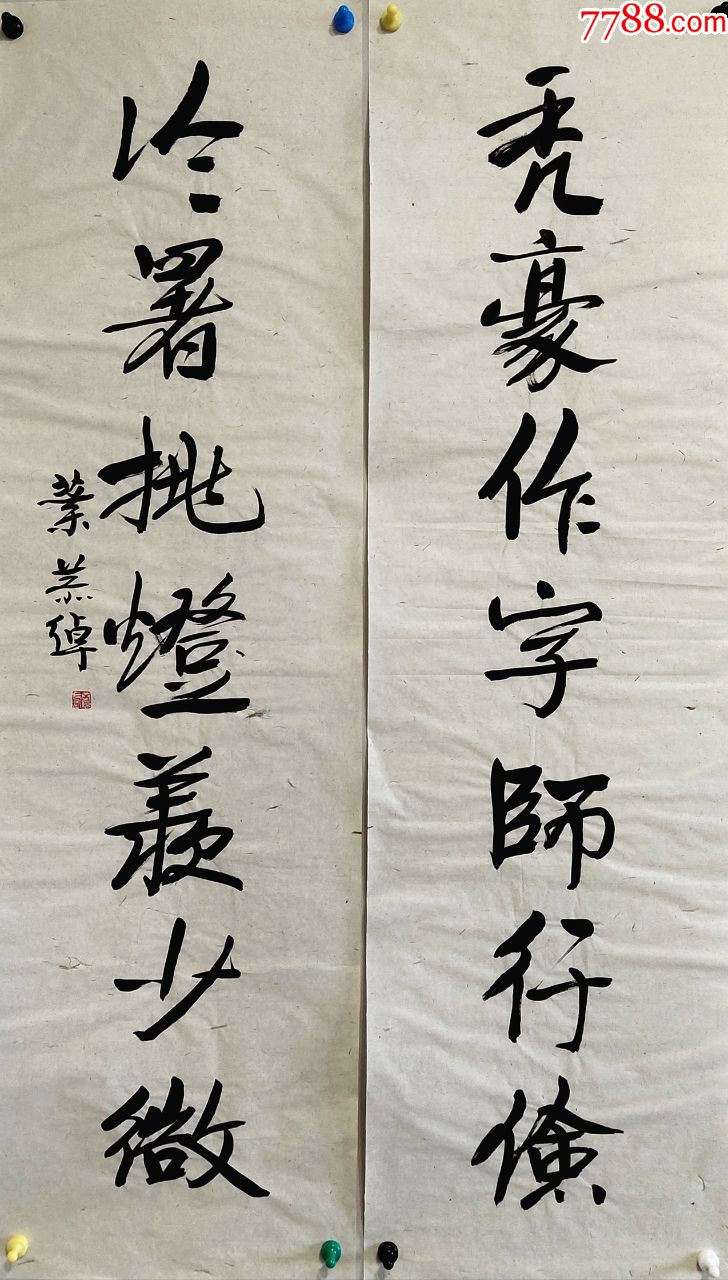 7788.com
秃豪作字師行儉
冷署挑燈羨少微
葉恭綽